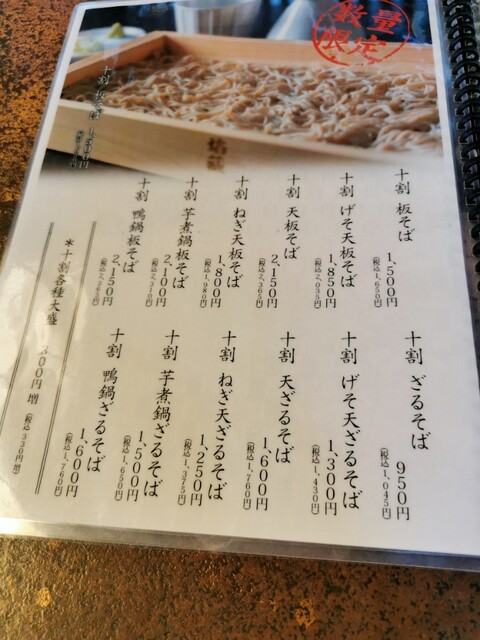 数量
限定
十割 板そば 1,500円
十割 板そば 1,500円
(税込1,650円)
十割 げそ天板そば 1,850円
(税込2,035円)
十割 天板そば 2,150円
(税込2,365円)
十割 ねぎ天板そば 1,800円
(税込1,980円)
十割 芋煮鍋板そば 2,100円
(税込2,310円)
十割 鴨鍋板そば 2,150円
(税込2,365円)
十割 ざるそば 950円
(税込1,045円)
十割 げそ天ざるそば 1,300円
(税込1,430円)
十割 天ざるそば 1,600円
(税込1,760円)
十割 ねぎ天ざるそば 1,250円
(税込1,375円)
十割 芋煮鍋ざるそば 1,500円
(税込1,650円)
十割 鴨鍋ざるそば 1,600円
(税込1,760円)
*十割各種大盛 300円増
(税込330円増)